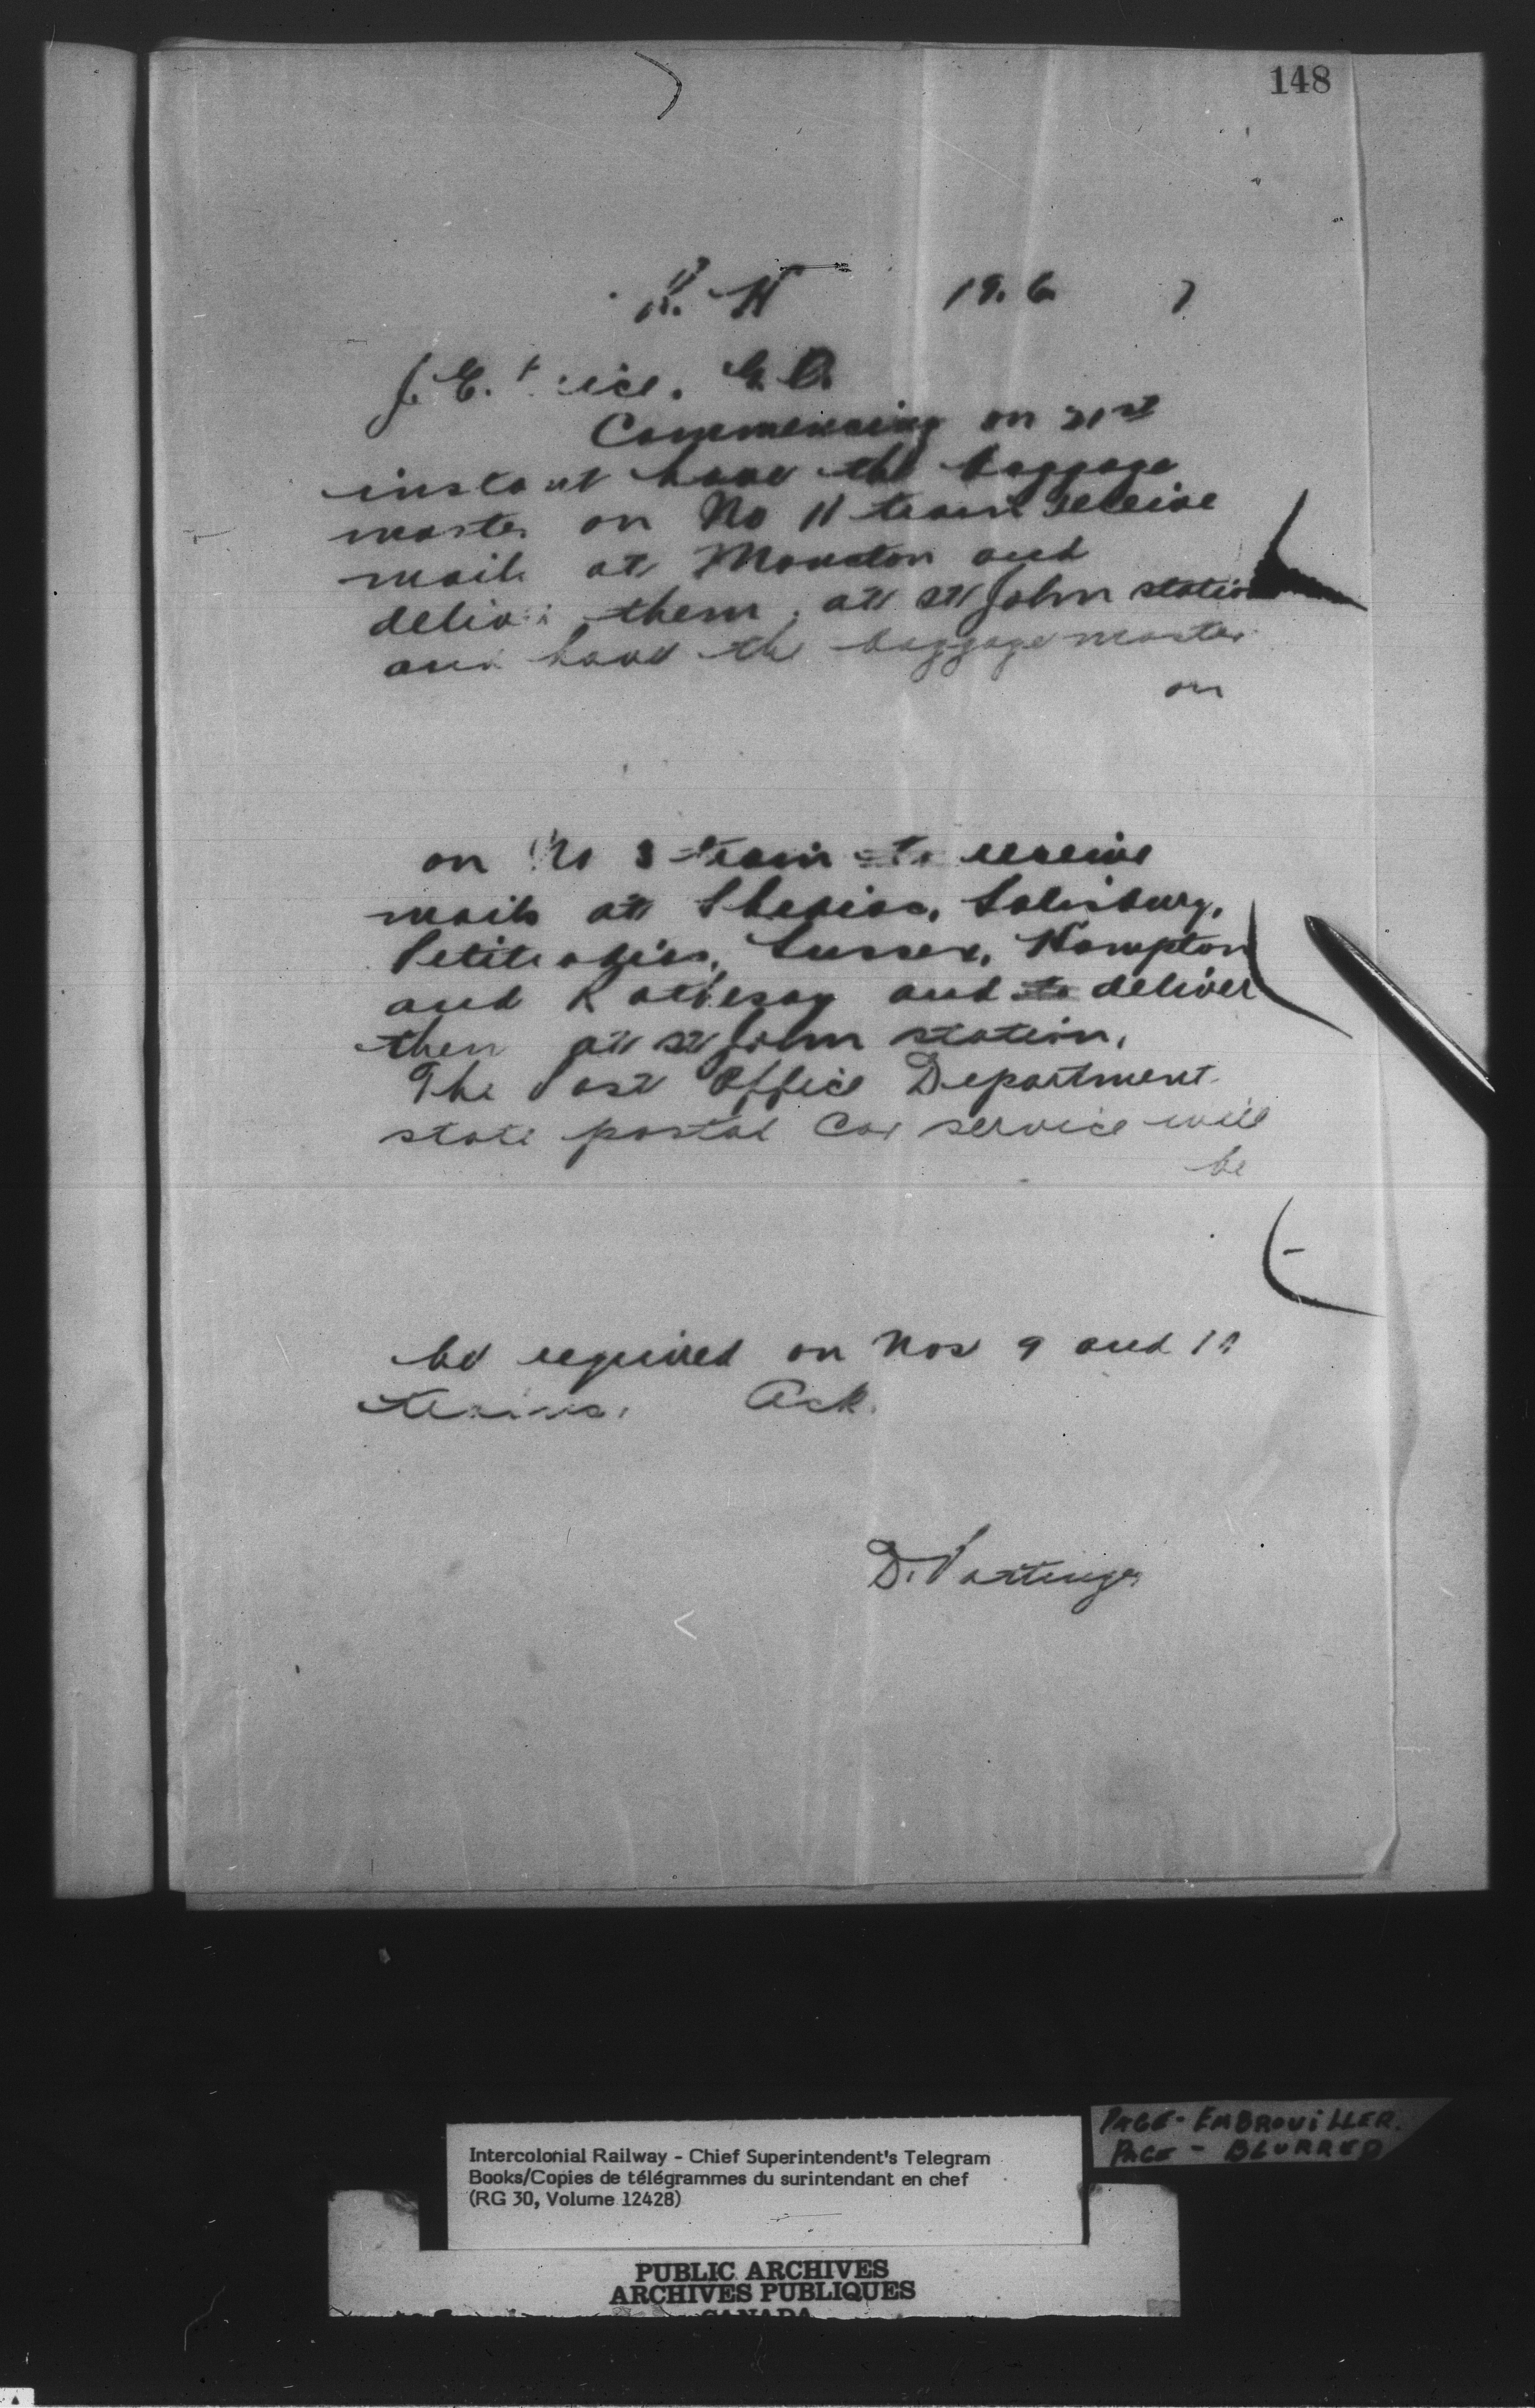 148
19. 6 7
J. E. Price. G. O.
Commencing on 21st
instant have the baggage
master on No 11 train receive
mails at Moncton and
deliver them at St John station
and have the baggage master
on
on No 3 train to receive
mails at Shediac, Salisbury,
Petitcodiac, Sussex, Hampton
and Rothesay and to deliver
them at St John station.
The Post Office Department
state postal car service will
be
be required on Nos 9 and
trains. Ack.
D. Pottinger
PAGE - EMBROUILLER.
PAGE - BLURRED
Intercolonial Railway - Chief Superintendent's Telegram
Books/Copies de télégrammes du surintendant en chef
(RG 30, Volume 12428)
PUBLIC ARCHIVES
ARCHIVES PUBLIQUES
CANADA